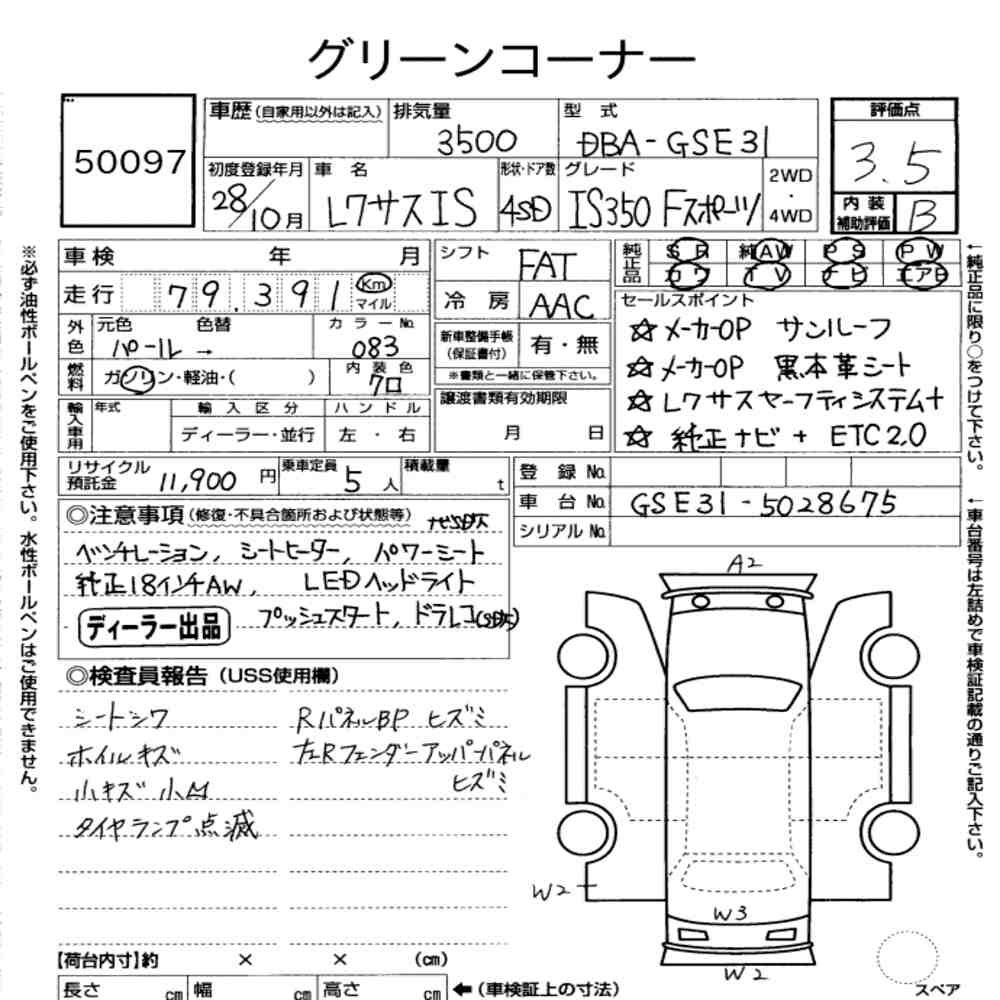 グリーンコーナー
50097
車歴 (自家用以外は記入)
排気量
3500
型 式
DBA-GSE31
評価点
3.5
初度登録年月
28/10月
車 名
レクサスIS
形状・ドア数
4SD
グレード
IS350 Fスポーツ
2WD
・
4WD
内 装
補助評価
B
車検 年 月
走行 79.391 Km
マイル
外色
元色 色替
パール →
カラーNo.
083
燃料
ガソリン・軽油・( )
内 装 色
クロ
輸入車用
年式
輸 入 区 分
ディーラー・並行
ハ ン ド ル
左 ・ 右
シフト
FAT
冷 房
AAC
新車整備手帳
(保証書付)
有・無
※書類と一緒に保管下さい。
譲渡書類有効期限
月 日
純正品
SR 純AW PS PW
カワ TV ナビ エアB
セールスポイント
☆メーカーOP サンルーフ
☆メーカーOP 黒本革シート
☆レクサスセーフティシステム+
☆純正ナビ + ETC2.0
リサイクル
預託金
11,900 円
乗車定員
5 人
積載量
t
登 録 No.
車 台 No. GSE31-5028675
シリアル No.
◎注意事項 (修復・不具合箇所および状態等)
ベンチレーション, シートヒーター, パワーシート
純正18インチAW, LEDヘッドライト
プッシュスタート, ドラレコ
ディーラー出品
◎検査員報告 (USS使用欄)
シートシワ
ホイルキズ
小キズ 小凹
タイヤランプ点滅
RパネルBP ヒズミ
左Rフェンダーアッパーパネル
ヒズミ
A2
W2
W3
W2
スペア
【荷台内寸】約 × × (cm)
長さ cm 幅 cm 高さ cm
← (車検証上の寸法)
※必ず油性ボールペンをご使用下さい。水性ボールペンはご使用できません。
←純正品に限り○をつけて下さい。
←車台番号は左詰めで車検証記載の通りご記入下さい。